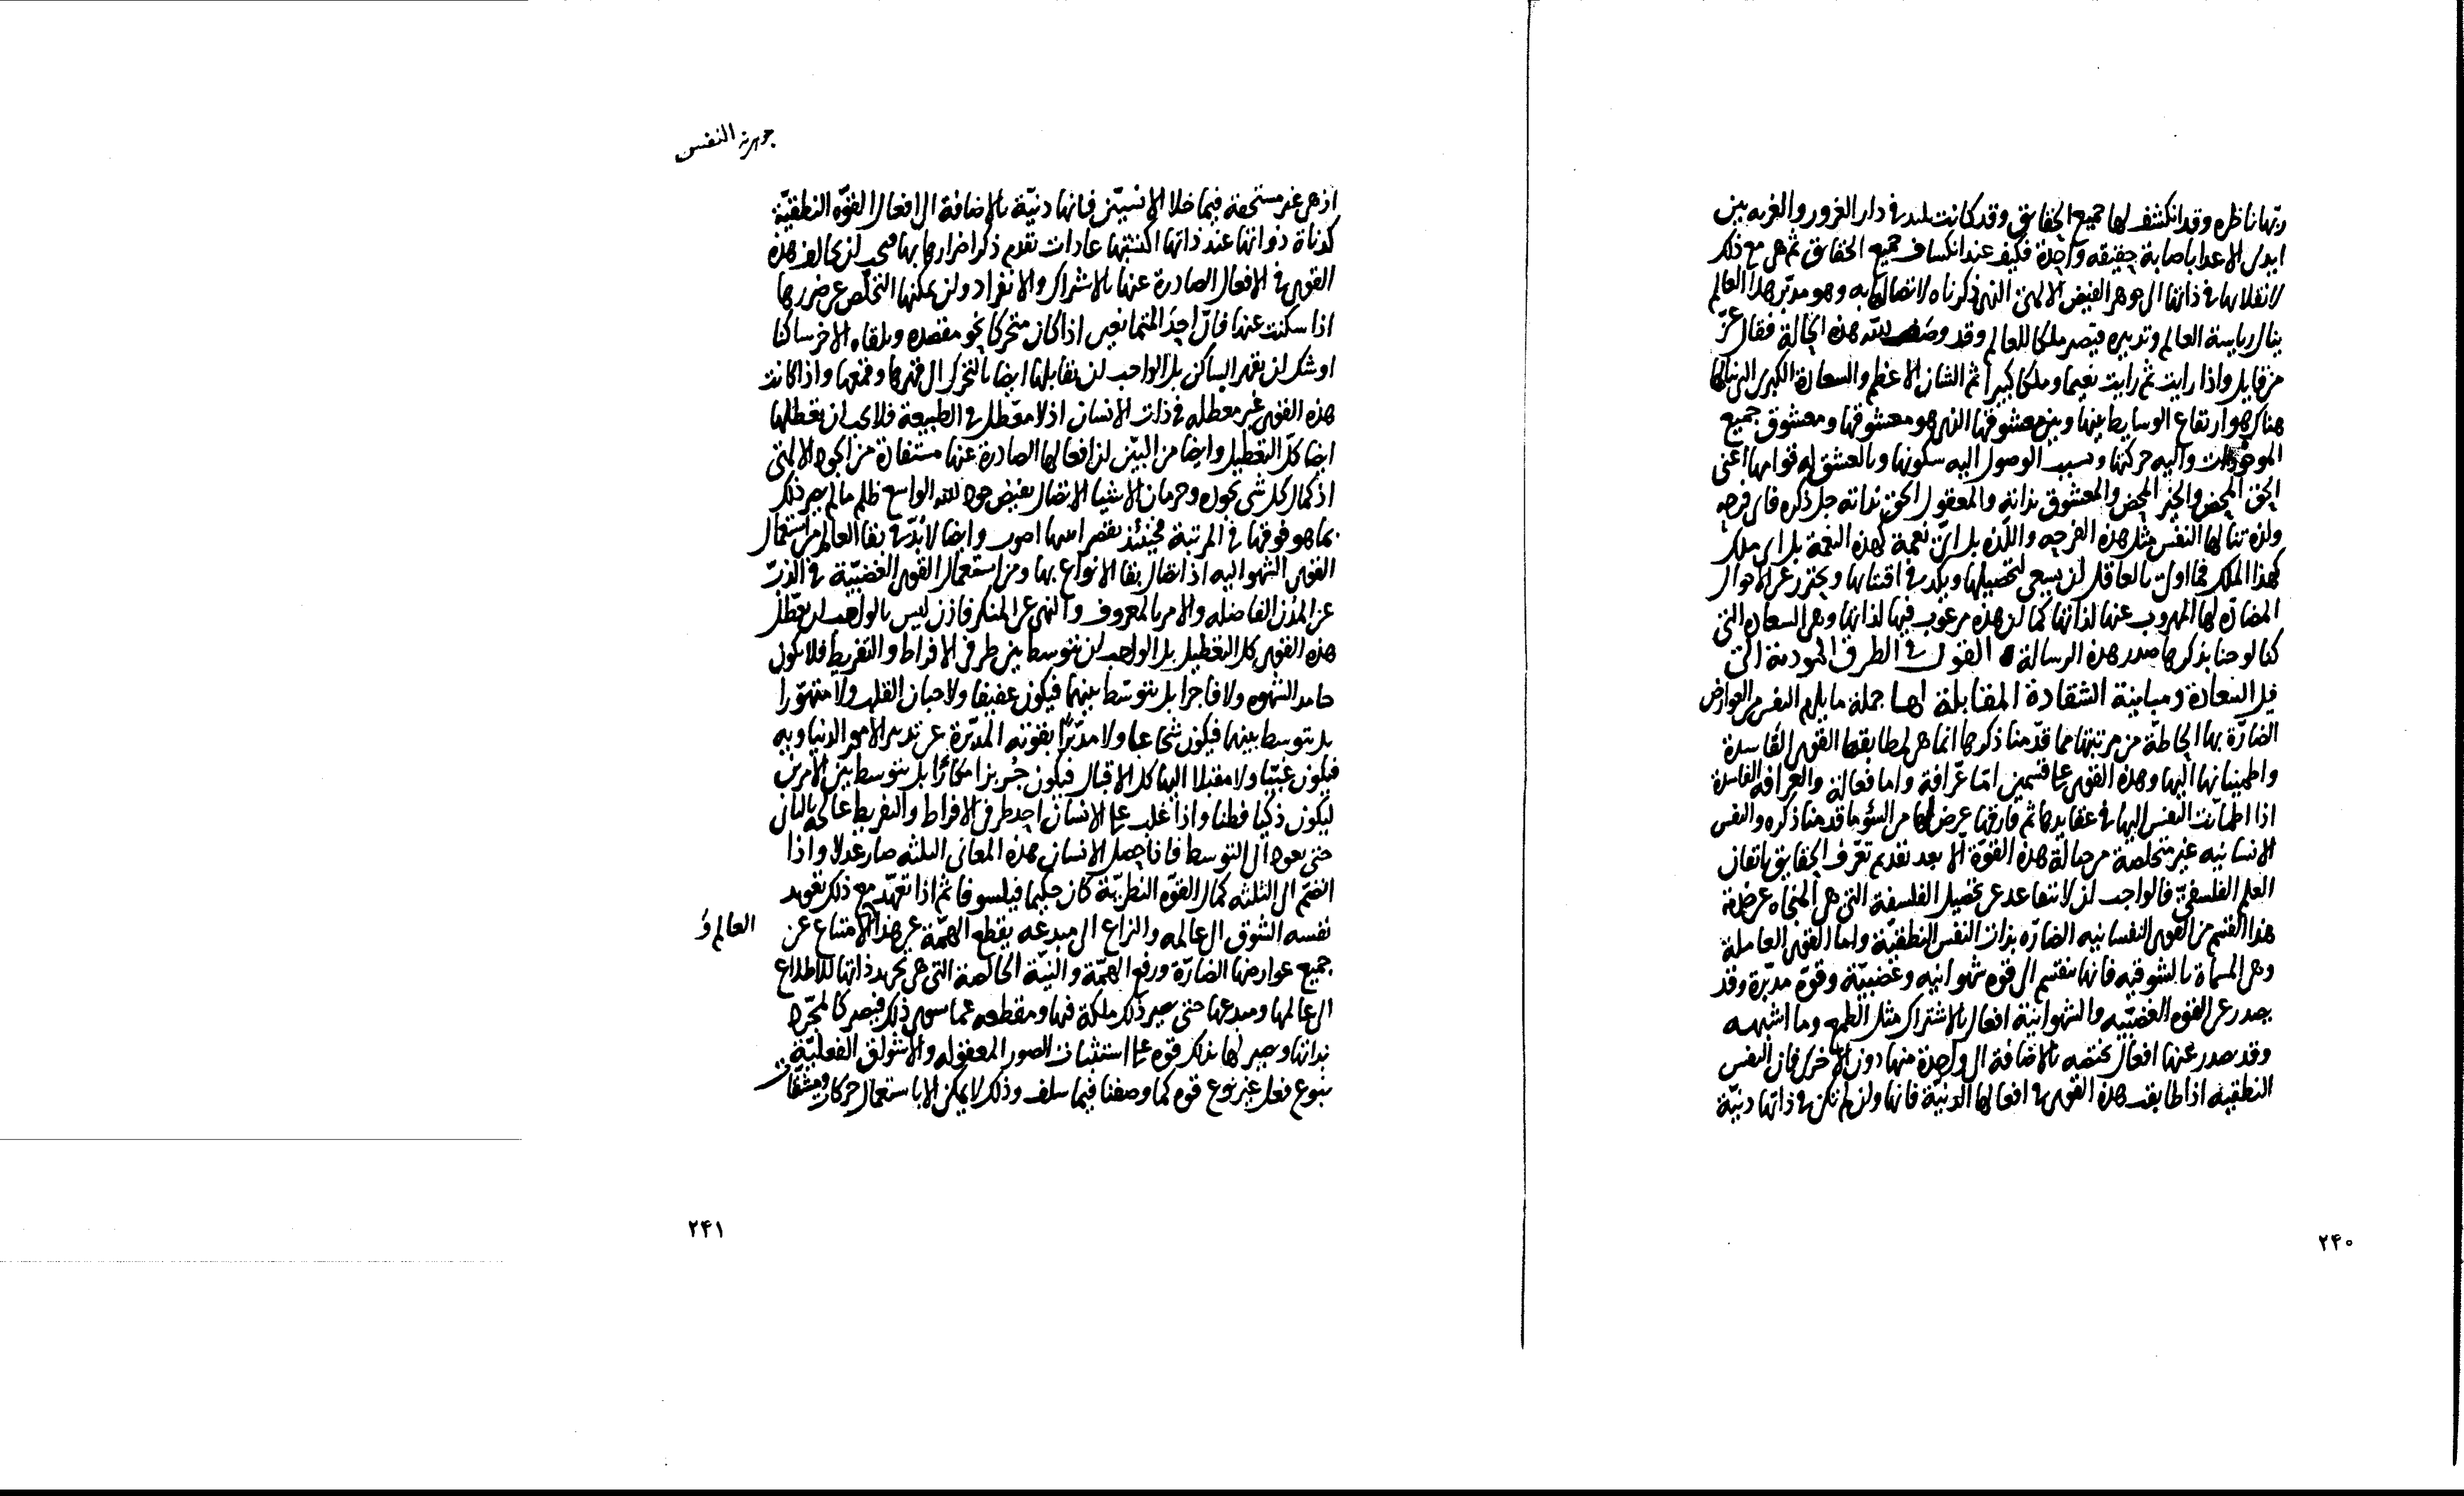 ربها ناظره وقد انكشف لها جميع الحقائق وقد كانت تلتذ في دار الغرور والغربه بين
ايدي الاعدا باصابة حقيقه واحدة فكيف عند انكشاف جميع الحقائق ثم هي مع ذلك
لانقلابها في ذاتها الى جوهر الفيض الالهى الذى ذكرناه لاتصالها به وهو مدبر هذا العالم
ينال رياسة العالم وتدبيره فيصير ملكا للعالم وقد وصف الله هذه الحالة فقال عز
من قايل واذا رايت ثم رايت نعيما وملكا كبيرا ثم الشان الاعظم والسعادة الكبرى التى ينالها
هناك هو ارتفاع الوسايط بينها وبين معشوقها الذى هو معشوقها ومعشوق جميع
الموجودات واليه حركتها وبسبب الوصول اليه سكونها وبالعشق له قوامها اعنى
الحق المحض والخير المحض والمعشوق بذاته والمعقول الحق بذاته جل ذكره فاى فرحه
ولذه تنالها النفس مثل هذه الفرحه واللذه بل اى نعمة كهذه النعمة بل اى ملك
كهذا الملك فما اولى بالعاقل ان يسعى لتحصيلها ويكد في اقتنائها ويحترز عن الاحوال
المضادة لها المهروب عنها لذاتها كما ان هذه مرغوب فيها لذاتها وهى السعاده التى
كنا لوحنا بذكرها صدر هذه الرسالة القول في الطرق المودية الى
نيل السعادة ومباينة الشقاوة المقابلة لها جملة ما يلزم النفس من العوارض
الضارة بها الحاطة من مرتبتها مما قدمنا ذكرها انما هى لمطابقتها القوى الفاسدة
واطمينانها اليها وهذه القوى على قسمين اما عرافة واما فعالة والعرافه الفاسدة
اذا اطمانت النفس اليها في عقايدها ثم فارقتها عرض لها من السؤ ما قدمنا ذكره والنفس
الانسانيه غير متخلصة من حبالة هذه القوة الا بعد تقديم تعرف الحقايق باتقان
العلم الفلسفى فالواجب ان لا نتقاعد عن تحصيل الفلسفة التى هى المنجاه عن
هذا القسم من القوى النفسانيه الضاره بذات النفس النطقية واما القوى العاملة
وهى المسماة بالشوقيه فانها تنقسم الى قوه شهوانيه وغضبية وقوة مدبرة وقد
يصدر عن القوه الغضبيه والشهوانية افعال بالاشتراك مثل الطمع وما اشبهه
وقد يصدر عنها افعال مختصه بالاضافة الى واحدة منها دون الاخرى فان النفس
النطقيه اذا طابقت هذه القوى في افعالها الدنية فانها وان لم تكن في ذاتها دنية
٢۴٠
جوهرية النفس
اذ هى غير مستحقة فيما خلا الانسيين فانها دنية بالاضافة الى افعال القوه النطقية
كدناة ذواتها عند ذاتها اكتسبتها عادات تقدم ذكر اضرارها بها ان تخالف هذه
القوى في الافعال الصادرة عنها بالاشتراك والانفراد ولن يمكنها التخلص عن ضررها
اذا سكنت عنها فان احد المتمانعين اذا كان متحركا نحو مقصده وبلقاه الاخر ساكنا
اوشك ان يقهر الساكن بل الواجب ان تقابلها ايضا بالتحرك الى قهرها ومنعها واذا كانت
هذه القوى غير معطله في ذات الانسان اذ لا معطل في الطبيعة فلا يجب ان نعطلها
ايضا كل التعطيل وايضا من البين ان افعالها الصادرة عنها مستفادة من الجود الالهى
اذ كمال كل شى بجوده وحرمان الاشيا الاتصال بفيض جود الله الواسع ظلم مالم يضر ذلك
بما هو فوقها في المرتبة فحينئذ اصوب وايضا لا بد في بقا العالم من استعمال
القوى الشهوانيه اذ اتصال بقا الانواع بها ومن استعمال القوى الغضبية في الذب
عن المدن الفاضله والامر بالمعروف والنهى عن المنكر فاذن ليس بالواجب ان يعطل
هذه القوى كل التعطيل بل الواجب ان يتوسط بين طرفى الافراط والتفريط فلا يكون
خامد الشهوه ولا فاجرا بل يتوسط بينهما فيكون عفيفا ولا جبان القلب ولا متهورا
بل يتوسط بينهما فيكون شجاعا ولا مدبرا بقوته المدبرة عن تدبير الامور الدنياويه
فيكون غبيا ولا مقبلا اليها كل الاقبال فيكون جربزا مكارا بل يتوسط بين الامرين
ليكون ذكيا فطنا واذا غلب على الانسان احد طرفى الافراط والتفريط عالجه بالثانى
حتى يعود الى التوسط فاذا حصل الانسان هذه المعانى الثلثه صار عدلا واذا
انضم الى الثلثه كمال القوه النظرية كان حكيما فيلسوفا ثم اذا تعهد مع ذلك تعويد
نفسه الشوق الى عالمه والنزاع الى مبدعه بقطع الهمة عن هذا الامتناع عن
العالم و
جميع عوارضها الضارة ورفع الهمة والنية الخالصة التى هى تجريد ذاتها للاطلاع
الى عالمها ومبدعها حتى يصير ذلك ملكة فيها ومقطعه عما سوى ذلك فيصير كالمجرد
بذاتها ويصير لها بذلك قوه على استثبات الصور المعقوله والاشواق الفعلية
بنوع فعل غير نوع قوه كما وصفنا فيما سلف وذلك لا يمكن الا باستعمال حركات ومشقات
٢۴١